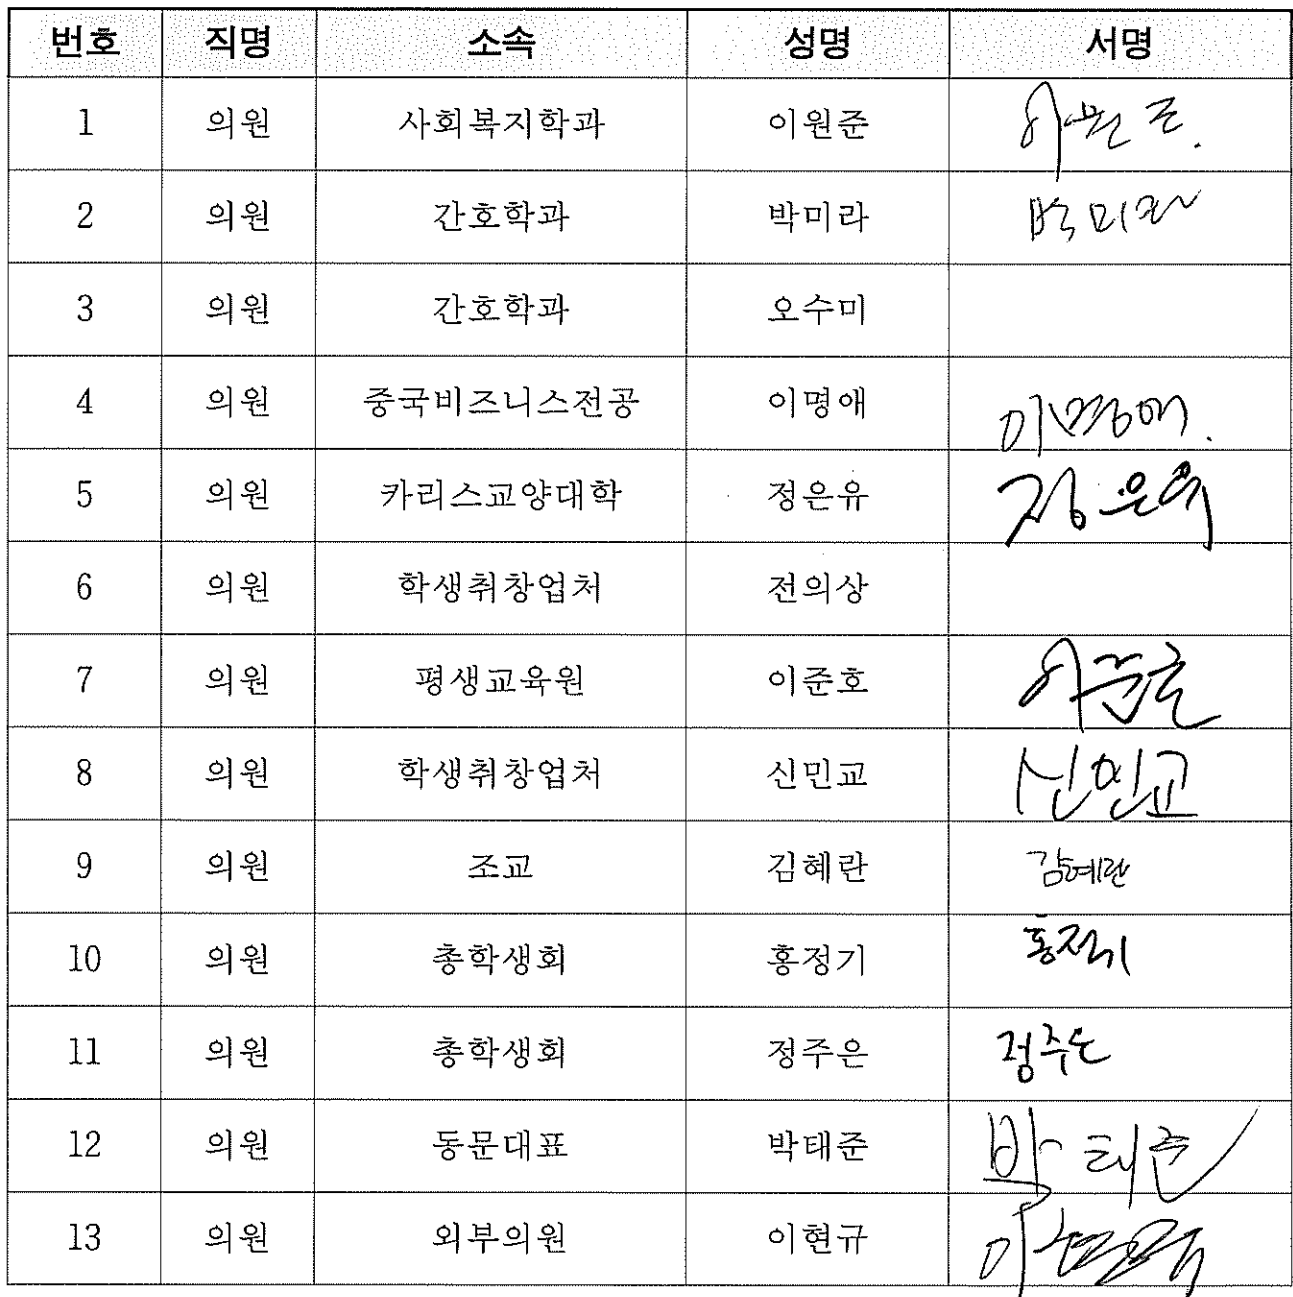 번호 직명 소속 성명 서명
1 의원 사회복지학과 이원준 이원준.
2 의원 간호학과 박미라 박미라
3 의원 간호학과 오수미
4 의원 중국비즈니스전공 이명애 이명애.
5 의원 카리스교양대학 정은유 정은유
6 의원 학생취창업처 전의상
7 의원 평생교육원 이준호 이준호
8 의원 학생취창업처 신민교 신민교
9 의원 조교 김혜란 김혜란
10 의원 총학생회 홍정기 홍정기
11 의원 총학생회 정주은 정주은
12 의원 동문대표 박태준 박태준
13 의원 외부의원 이현규 이현규